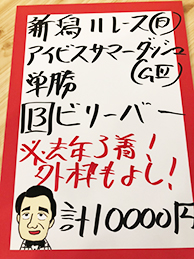 新潟11レース(日)
アイビスサマーダッシュ
(GⅢ)
単勝
13ビリーバー
※去年3着!
外枠もよし!
計10000円